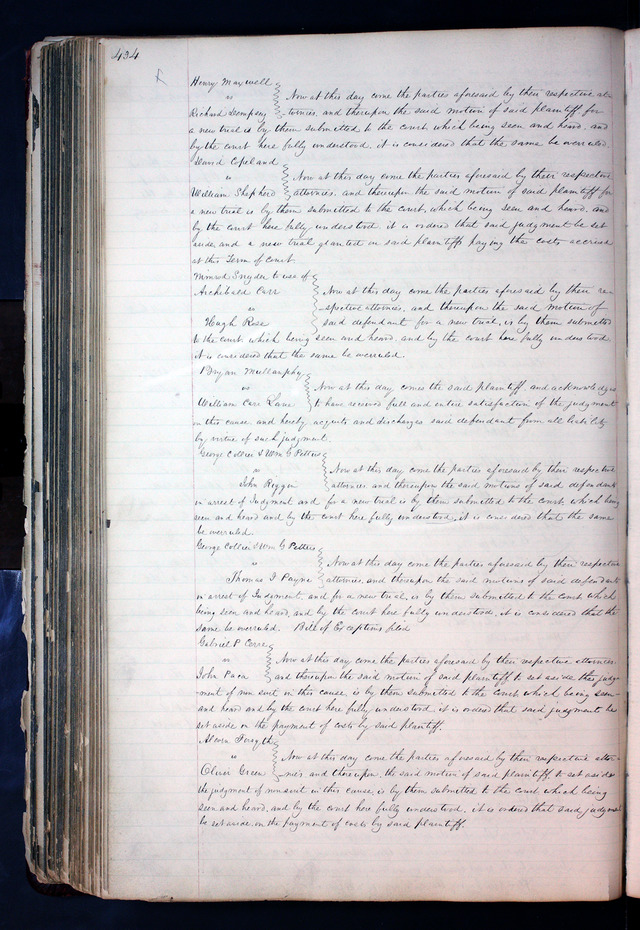 434
Henry Maxwell
vs
Richard Dempsey
Now at this day come the parties aforesaid by their respective at-
tornies, and thereupon the said motion of said plaintiff for
a new trial is by them submitted to the court which being seen and heard, and
by the court here fully understood, it is considered that the same be overruled.
David Copeland
vs
William Shepherd
Now at this day come the parties aforesaid by their respective
attornies, and thereupon the said motion of said plaintiff for
a new trial is by them submitted to the court, which being seen and heard, and
by the court here fully understood it is ordered that said judgment be set
aside, and a new trial granted on said plaintiffs paying the costs accrued
at this Term of Court.
Nimrod Snyder to use of
Archibald Carr
vs
Hugh Rose
Now at this day come the parties aforesaid by their re-
spective attornies, and thereupon the said motion of
said defendant for a new trial, is by them submitted
to the court which being seen and heard, and by the court here fully understood
it is considered that the same be overruled.
Bryan Mullanphy
vs
William Carr Lane
Now at this day comes the said plaintiff, and acknowledges
to have received full and entire satisfaction of the judgment
in this cause and hereby acquits and discharges said defendant from all liability
by virtue of such judgment.
George Collier & Wm G Pettus
vs
John Biggin
Now at this day come the parties aforesaid by their respective
attornies and thereupon the said motions of said defendant
in arrest of Judgment and for a new trial is by them submitted to the court, which being
seen and heard and by the court here fully understood, it is considered that the same
be overruled.
George Collier & Wm G Pettus
vs
Thomas J Payne
Now at this day come the parties aforesaid by their respective
attornies, and thereupon the said motions of said defendant
in arrest of Judgment, and for a new trial, is by them submitted to the court which
being seen and heard, and by the court here fully understood, it is considered that the
same be overruled. Bill of Exceptions filed
Gabriel P Cerre
vs
John Paca
Now at this day come the parties aforesaid by their respective attornies
and thereupon the said motion of said plaintiff to set aside the judg-
-ment of non suit in this cause, is by them submitted to the court which being seen
and heard and by the court here fully understood, it is ordered that said judgment be
set aside on the payment of costs by said plaintiff.
Alvorn Forsyth
vs
Oliver Green
Now at this day come the parties aforesaid by their respective attor-
nies and thereupon, the said motion of said plaintiff to set aside
the judgment of nonsuit in this cause, is by them submitted to the court which being
seen and heard, and by the court here fully understood, it is ordered that said judgment
be set aside, on the payment of costs by said plaintiff.